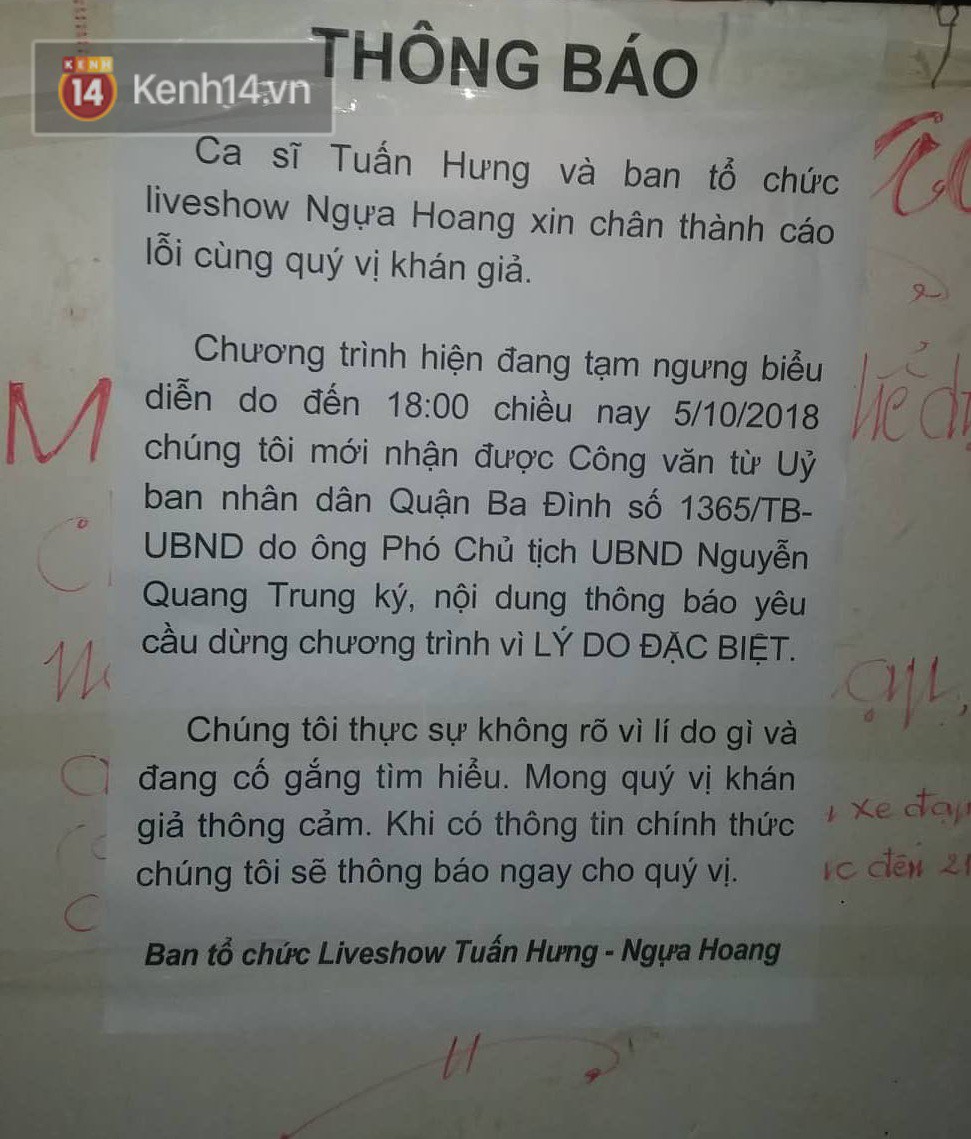 KENH
14
Kenh14.vn
THÔNG BÁO
Ca sĩ Tuấn Hưng và ban tổ chức
liveshow Ngựa Hoang xin chân thành cáo
lỗi cùng quý vị khán giả.
Chương trình hiện đang tạm ngưng biểu
diễn do đến 18:00 chiều nay 5/10/2018
chúng tôi mới nhận được Công văn từ Uỷ
ban nhân dân Quận Ba Đình số 1365/TB-
UBND do ông Phó Chủ tịch UBND Nguyễn
Quang Trung ký, nội dung thông báo yêu
cầu dừng chương trình vì LÝ DO ĐẶC BIỆT.
Chúng tôi thực sự không rõ vì lí do gì và
đang cố gắng tìm hiểu. Mong quý vị khán
giả thông cảm. Khi có thông tin chính thức
chúng tôi sẽ thông báo ngay cho quý vị.
Ban tổ chức Liveshow Tuấn Hưng - Ngựa Hoang
M
xe đạp
đến 21